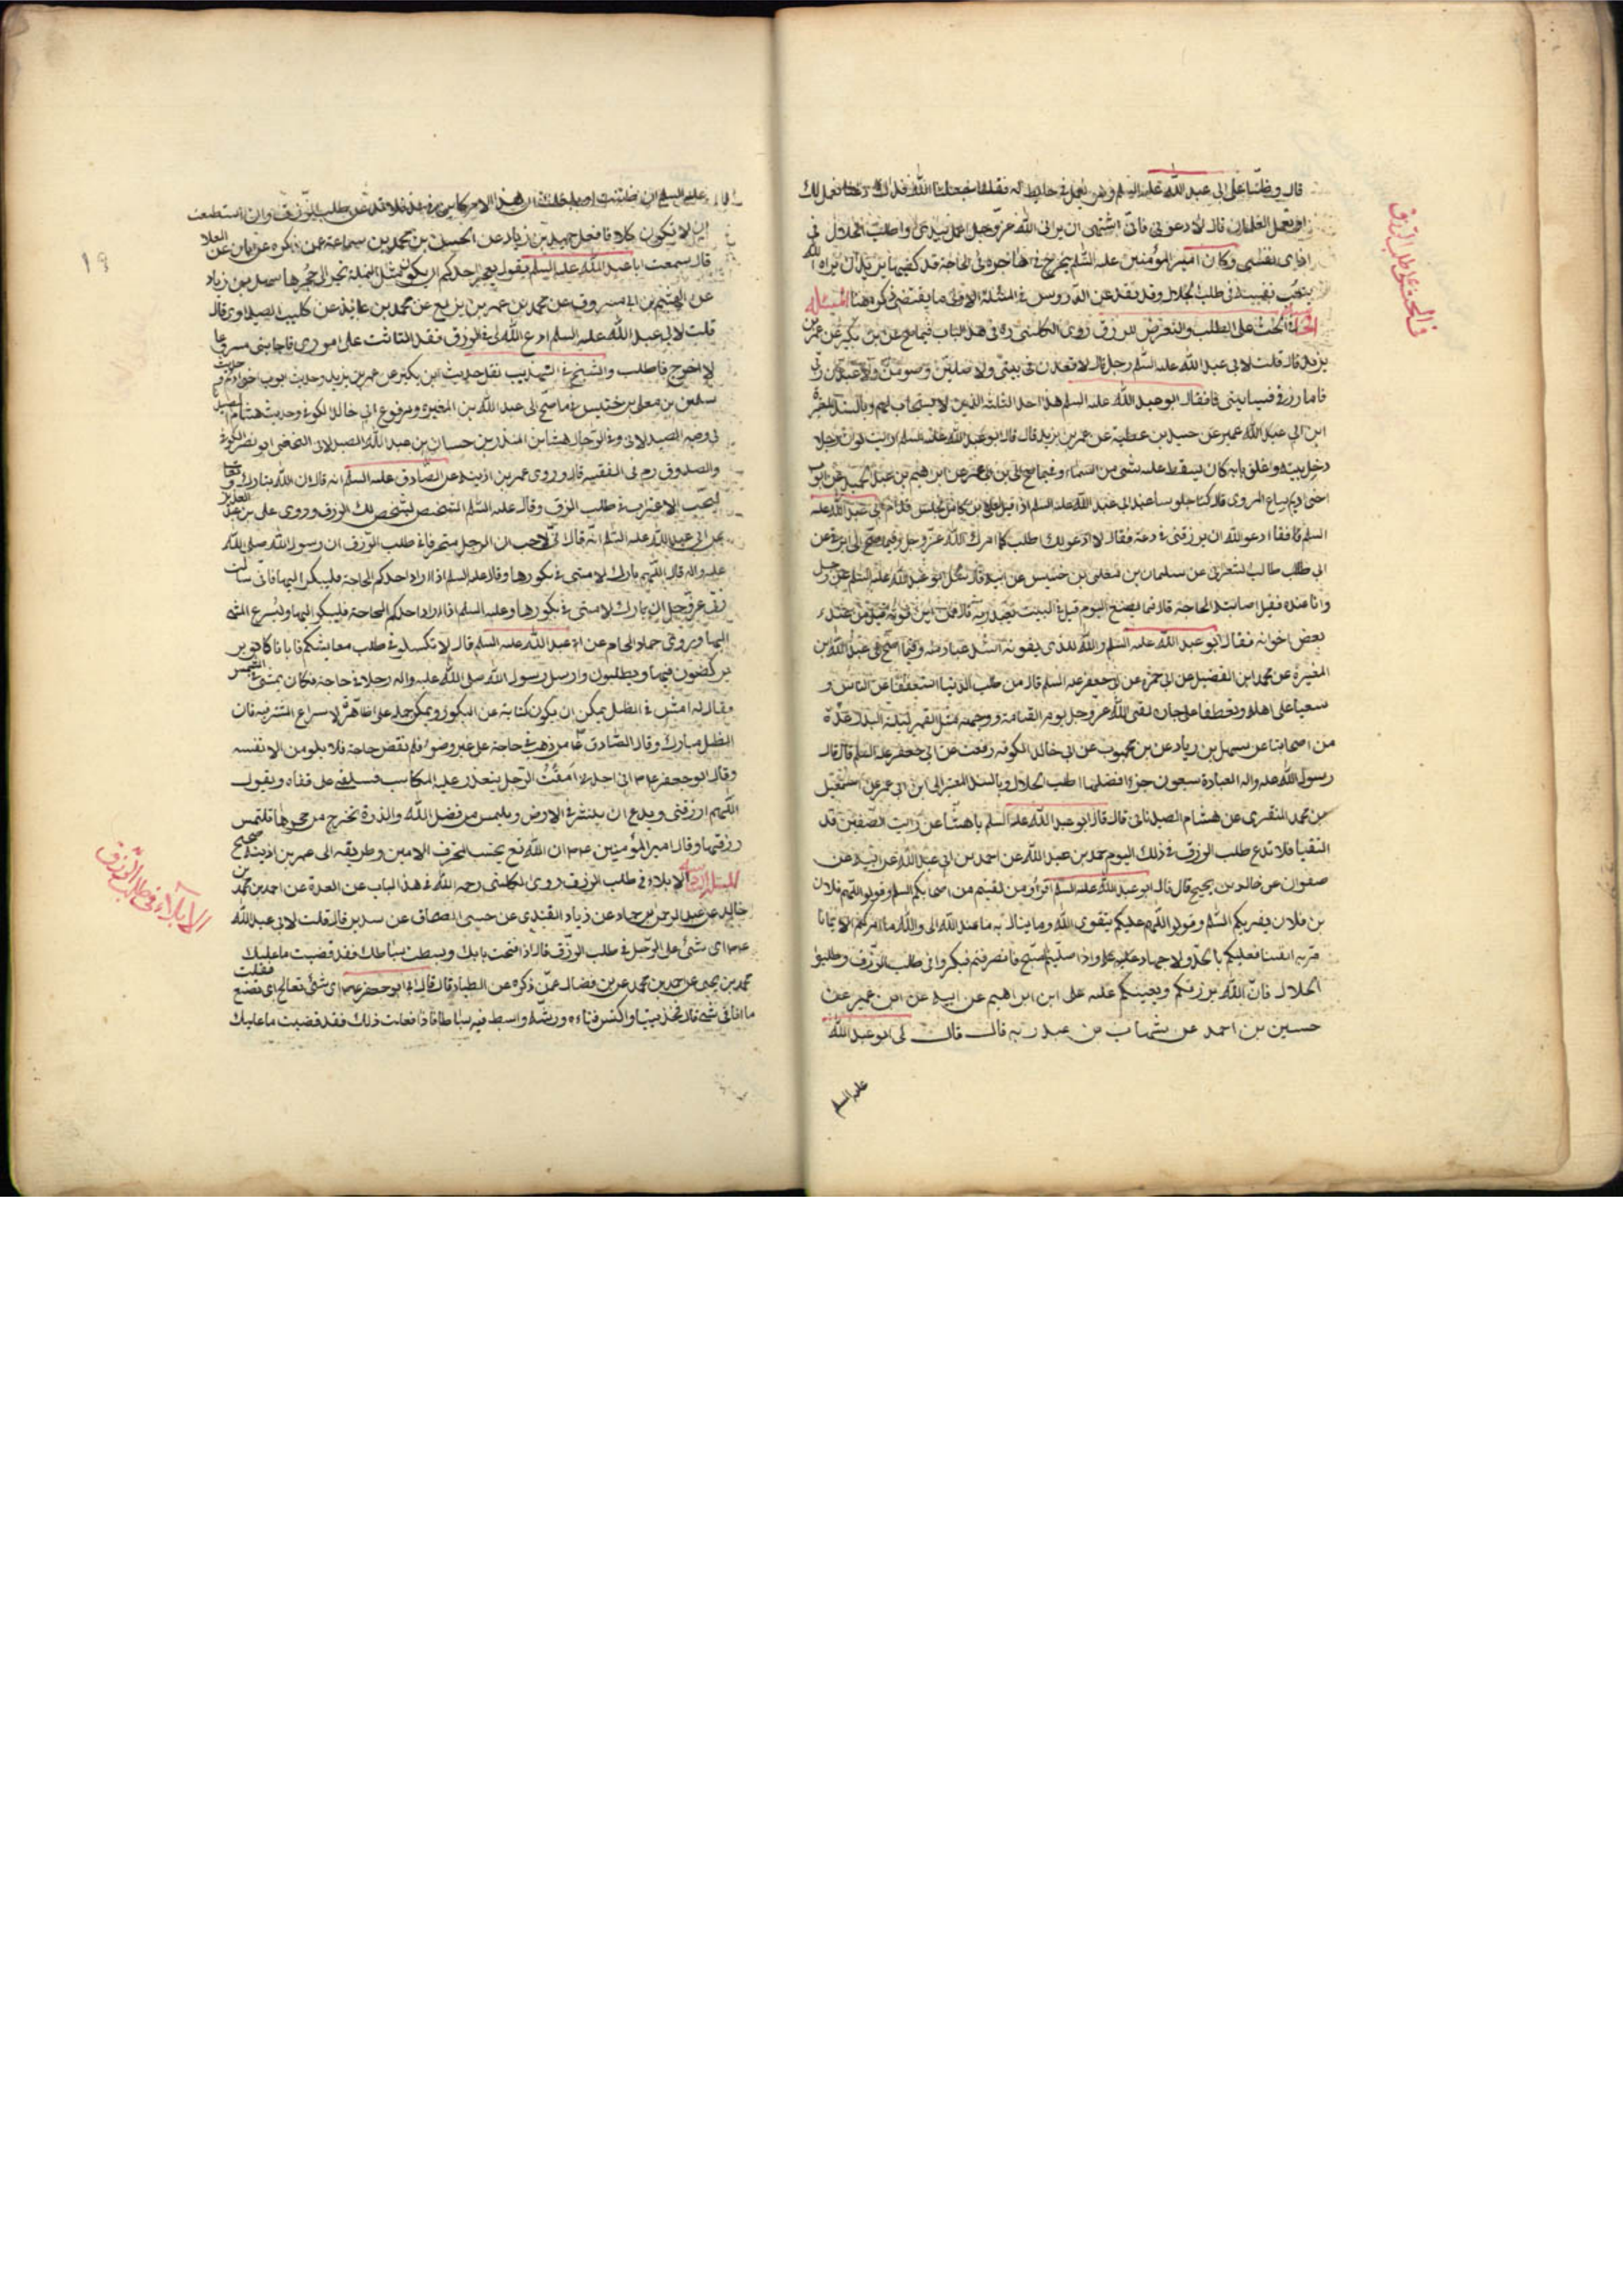 قال دخلنا على ابى عبد الله عليه السلم وهو يعمل فى حايط له فقلنا جعلنا الله فداك دعنا نعمل لك
او تعمل الغلمان قال لا دعونى فانى اشتهى ان يرانى الله عز وجل اعمل بيدى واطلب الحلال فى
اذى نفسى وكان امير المؤمنين عليه السلم يخرج فى الهاجرة فى الحاجة قد كفيها يريد ان يراه الله
يتعب نفسه فى طلب الحلال وقد نقد عن الدروس فى المسئلة الاولى ما يقتضى ذكره هنا المسئلة
الحث على الطلب والتعرض للرزق روى الكلينى ره فى هذا الباب فيما صح عن بن بكير عن عمر بن
يزيد قال قلت لابى عبد الله عليه السلم رجل قال لاقعدن فى بيتى ولاصلين وصومن ولاعبدن ربى
فاما رزقى فسياتينى فقال ابو عبد الله عليه السلم هذا احد الثلثة الذين لا يستجاب لهم وبالسند المعتبر
ابن ابى عبد الله عمير عن حسين بن عطية عن عمر بن يزيد قال قال ابو عبد الله عليه السلم ارايت لو ان رجلا
دخل بيته واغلق بابه كان يسقط عليه شى من السماء وفيما صح الى بن ابى عمير عن ابرهيم بن عبد الحميد عن ايوب
اخى اديم بياع الهروى قال كنا جلوسا عند ابى عبد الله عليه السلم اذ اقبل علا بن كامل فجلس قدام ابى عبد الله عليه
السلم فقال ادعو الله ان يرزقنى فى دعة فقال لا ادعو لك اطلب كما امرك الله عز وجل وفيما صح الى
ابى طالب الشعرانى عن سليمان بن معلى بن خنيس عن ابيه قال سئل ابو عبد الله عليه السلم عن رجل
وانا عنده فقيل اصابته الحاجة قال فما يصنع اليوم قيل فى البيت يعبد ربه قال فمن اين قوته قيل من عند
بعض اخوانه فقال ابو عبد الله عليه السلم والله للذى يقوته اشد عبادة منه وفيما صح الى عبد الله بن
المغيرة عن محمد ابن الفضيل عن ابى حمزة عن ابى جعفر عليه السلم قال من طلب الدنيا استعفافا عن الناس و
سعيا على اهله وتعطفا على جاره لقى الله عز وجل يوم القيامة ووجهه مثل القمر ليلة البدر عدة
من اصحابنا عن سهل بن زياد عن بن محبوب عن ابى خالد الكوفى رفعه عن ابى جعفر عليه السلم قال قال
رسول الله عليه واله العبادة سبعون جزءا افضلها طلب الحلال وبالسند المعتبر الى ابن ابى عمير عن اسمعيل
بن محمد المنقرى عن هشام الصيدنانى قال قال ابو عبد الله عليه السلم يا هشام ان رايت الصفين قد
التقيا فلا تدع طلب الرزق فى ذلك اليوم احمد بن عبد الله عن احمد بن ابى عبد الله عن ابيه عن
صفوان عن خالد بن نجيح قال قال ابو عبد الله عليه السلم اقرأوا من لقيتم من اصحابكم السلم وقولوا لهم فلان
بن فلان يقريكم السلم وقولوا لهم عليكم بتقوى الله وما ينال به ما عند الله انى والله ما امركم الا بما نا
مر به انفسنا فعليكم بالجد والاجتهاد واذا صليتم الصبح فانصرفتم فبكروا فى طلب الرزق وطلبوا
الحلال فان الله يرزقكم ويعينكم عليه على ابن ابراهيم عن ابيه عن ابن عمير عن
حسين بن احمد عن شهاب بن عبد ربه قال قال لى ابو عبد الله
عليه السلم
فى الحث على طلب الرزق
عليه السلم ان ظننت او بلغك ان هذا الامر كاين فى غد فلا تدعن طلب الرزق وان استطعت
ان لا تكون كلا فافعل حميد بن زياد عن الحسن بن محمد بن سماعة عمن ذكره عن ابان عن العلا
قال سمعت ابا عبد الله عليه السلم يقول ايعجز احدكم ان يكون مثل النملة تجر الى حجرها سهل بن زياد
عن الهيثم بن ابى مسروق عن محمد بن عمر بن بزيع عن محمد بن عايذ عن كليب الصيداوى قال
قلت لابى عبد الله عليه السلم ادع الله لى فى الرزق فقد التاثت على امورى فاجابنى مسرعا
لا اخرج فاطلب والشيخ فى التهذيب نقل حديث ابن بكير عن عمر بن يزيد وحديث ايوب اخو اديم وحديث
سليمن بن معلى بن خنيس فى ما صح الى عبد الله بن المغيرة ومرفوع ابى خالد الكوفى وحديث هشام
والصدوق ره فى الفقيه قال وروى عمر بن اذينة عن الصادق عليه السلم انه قال ان الله تبارك وتعالى
ليحب الاغتراب فى طلب الرزق وقال عليه السلم اشخص يشخص لك الرزق وروى على بن عبد العزيز
عن ابى عبد الله عليه السلم انه قال انى لاحب ان ارى الرجل متحرفا فى طلب الرزق ان رسول الله صلى الله
عليه واله قال اللهم بارك لامتى فى بكورها وقال عليه السلم اذا اراد احدكم الحاجة فليبكر اليها فانى سالت
ربى عز وجل ان يبارك لامتى فى بكورها وعليه السلم اذا اراد احدكم الحاجة فليبكر اليها وليسرع المشى
اليها وروى حماد اللحام عن ابى عبد الله عليه السلم قال لا تكسلوا فى طلب معايشكم فان اباءنا كانوا
يركضون فيها ويطلبون وارسل رسول الله صلى الله عليه واله رجلا فى حاجة فكان يمشى فى الشمس
فقال له امش فى الظل يمكن ان يكون كناية عن البكور ويمكن حمله على الظاهر
الظل مبارك وقال الصادق ع من ذهب فى حاجة على غير وضوء فلم تقض حاجة فلا يلومن الا نفسه
وقال ابو جعفر ع انى اجدنى امقت الرجل يتعذر عليه المكاسب فيستلقى على قفاه ويقول
اللهم ارزقنى ويدع ان ينتشر فى الارض ويلتمس من فضل الله والذرة تخرج من حجرها تلتمس
رزقها وقال امير المؤمنين ع ان الله تع يحب المحترف الامين وطريقه الى عمر بن اذينة صحيح
المسئلة الابلاء فى طلب الرزق روى الكلينى رحمه الله فى هذا الباب عن العدة عن احمد بن محمد بن
خالد عن عبد الرحمن بن حماد عن زياد القندى عن حسين الصحاف عن سدير قال قلت لابى عبد الله
ع اى شئ على الرجل فى طلب الرزق قال اذا فتحت بابك وبسطت بساطك فقد قضيت ما عليك
محمد بن يحيى عن احمد بن محمد عن بن فضال عمن ذكره عن الطيار قال قال لى ابو جعفر ع اى شئ تعالج اى تصنع فقلت
ما انا فى شئ قال فخذ بيتا واكنس فناءه ورشه وابسط فيه بساطا فاذا فعلت ذلك فقد قضيت ما عليك
الابلاء فى طلب الرزق
١٩